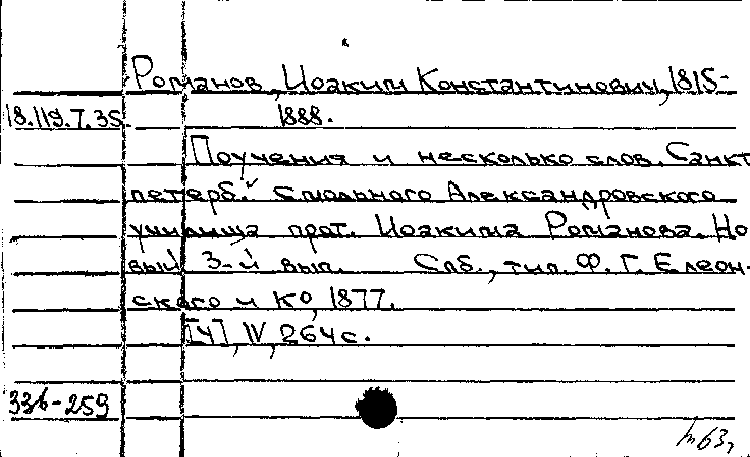 Романов, Иоаким Константинович, 1815-
18.119.7.35 1888.
Поучения и несколько слов. Санкт
петерб. Смольного Александровского
училища прот. Иоакима Романова. Но
вый 3-й вып. Спб., тип. Ф. Г. Елеон-
ского и Ко, 1877.
[4], IV, 264 с.
336-259